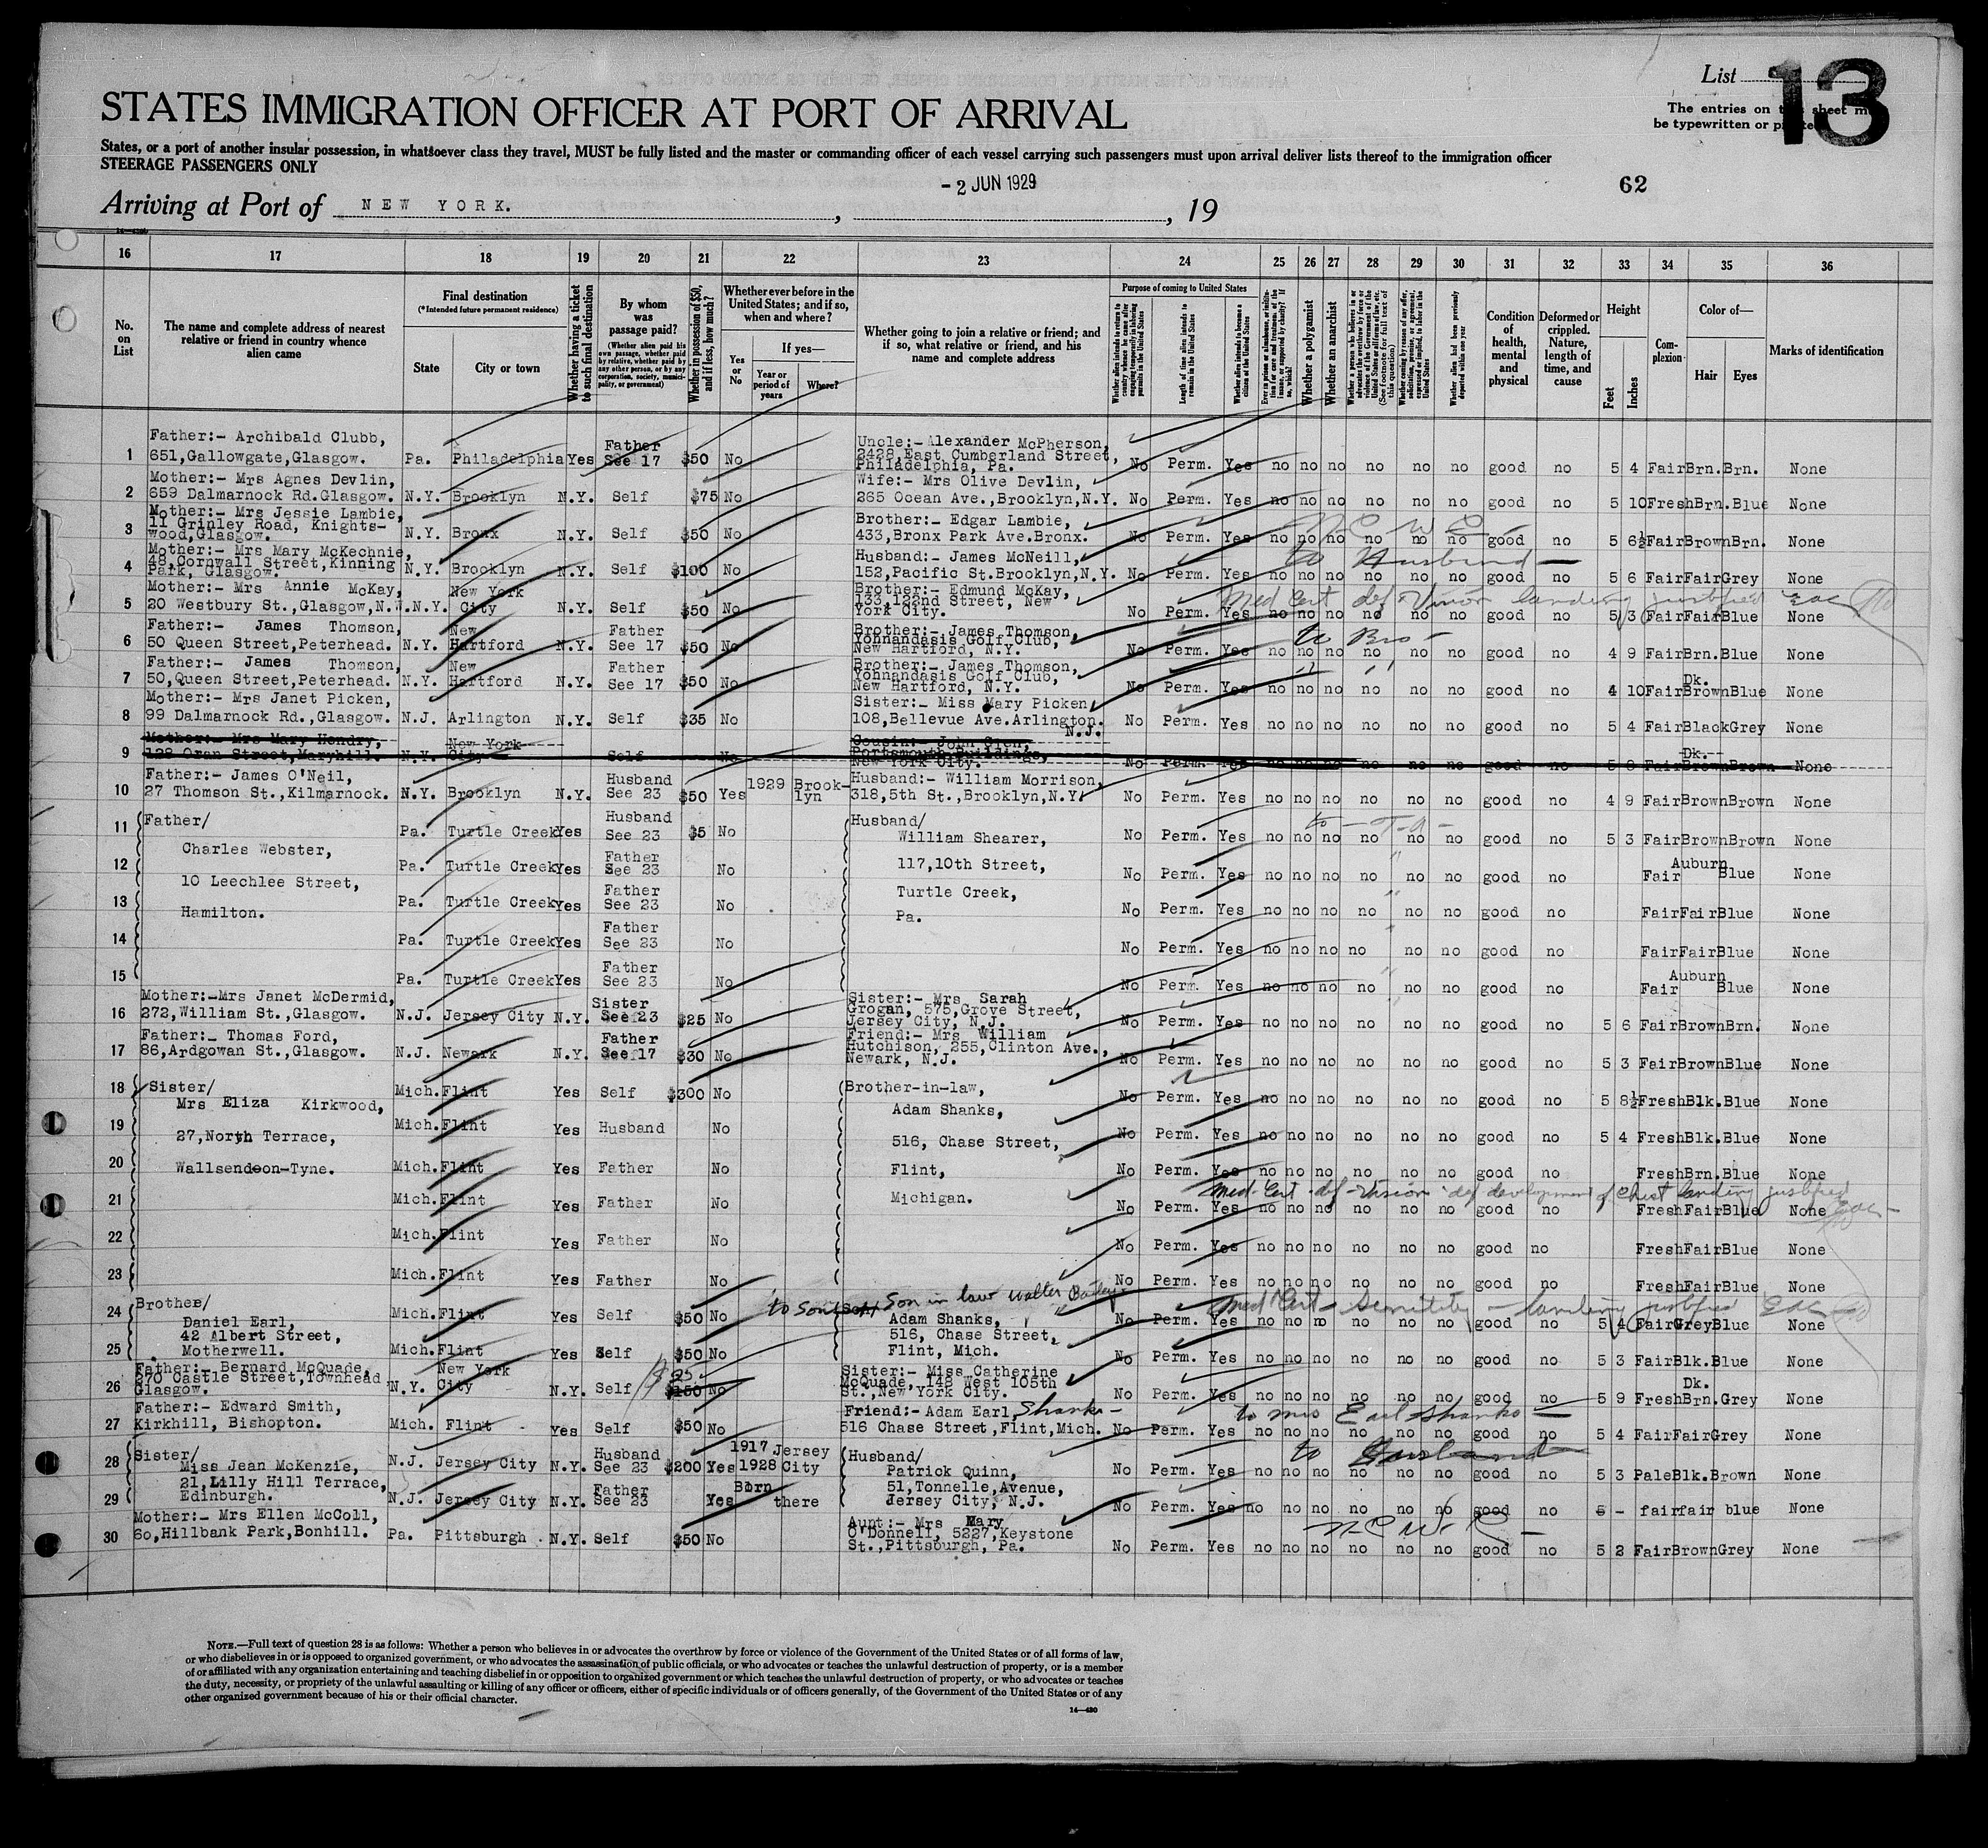 List 13
STATES IMMIGRATION OFFICER AT PORT OF ARRIVAL
The entries on this sheet
be typewritten or
States, or a port of another insular possession, in whatsoever class they travel, MUST be fully listed and the master or commanding officer of each vessel carrying such passengers must upon arrival deliver lists thereof to the immigration officer
STEERAGE PASSENGERS ONLY
- 2 JUN 1929
62
Arriving at Port of NEW YORK. , , 19
16 17 18 19 20 21 22 23 24 25 26 27 28 29 30 31 32 33 34 35 36
No. on List
The name and complete address of nearest relative or friend in country whence alien came
Final destination
(*Intended future permanent residence)
State
City or town
Whether having a ticket to such final destination
By whom was passage paid?
(Whether alien paid his own passage, whether paid by relative, whether paid by any other person, or by any corporation, society, municipality, or government)
Whether in possession of $50, and if less, how much?
Whether ever before in the United States; and if so, when and where?
Yes or No
If yes—
Year or period of years
Where?
Whether going to join a relative or friend; and if so, what relative or friend, and his name and complete address
Purpose of coming to United States
Length of time alien intends to remain in the United States
Whether alien intends to become a citizen of the United States
Whether a polygamist
Whether an anarchist
Whether alien had been previously deported within one year
Condition of health, mental and physical
Deformed or crippled. Nature, length of time, and cause
Height
Feet
Inches
Complexion
Color of—
Hair
Eyes
Marks of identification
1 Father:- Archibald Clubb, 651,Gallowgate,Glasgow. Pa. Philadelphia Yes Father See 17 $50 No Uncle:-Alexander McPherson, 2428,East Cumberland Street, Philadelphia, Pa. No Perm. Yes no no no no no no good no 5 4 Fair Brn. Brn. None
2 Mother:- Mrs Agnes Devlin, 659 Dalmarnock Rd.Glasgow. N.Y. Brooklyn N.Y. Self $75 No Wife:- Mrs Olive Devlin, 265 Ocean Ave.,Brooklyn,N.Y. No Perm. Yes no no no no no no good no 5 10 Fresh Brn. Blue None
3 Mother:- Mrs Jessie Lambie, 11 Grinley Road, Knights-wood,Glasgow. N.Y. Bronx N.Y. Self $50 No Brother:- Edgar Lambie, 433,Bronx Park Ave.Bronx. No Perm. Yes no no no no no no good no 5 6½ Fair Brown Brn. None
4 Mother:- Mrs Mary McKechnie, 48,Cornwall Street,Kinning Park, Glasgow. N.Y. Brooklyn N.Y. Self $100 No Husband:- James McNeill, 152,Pacific St.Brooklyn,N.Y. No Perm. Yes no no no no no no good no 5 6 Fair Fair Grey None
to Husband
5 Mother:- Mrs Annie McKay, 20 Westbury St.,Glasgow,N.W. N.Y. New York City N.Y. Self $50 No Brother:- Edmund McKay, 133,122nd Street, New York City. No Perm. Yes no no no no no no good no 5 3 Fair Fair Blue None
Med Cert def Vision landing justified
6 Father:- James Thomson, 50 Queen Street,Peterhead. N.Y. New Hartford N.Y. Father See 17 $50 No Brother:- James Thomson, Yohnandasis Golf Club, New Hartford, N.Y. No Perm. Yes no no no no no no good no 4 9 Fair Brn. Blue None
to Bro
7 Father:- James Thomson, 50,Queen Street,Peterhead. N.Y. New Hartford N.Y. Father See 17 $50 No Brother:- James Thomson, Yohnandasis Golf Club, New Hartford, N.Y. No Perm. Yes no no no no no no good no 4 10 Fair Dk. Brown Blue None
8 Mother:- Mrs Janet Picken, 99 Dalmarnock Rd.,Glasgow. N.J. Arlington N.Y. Self $35 No Sister:- Miss Mary Picken, 108,Bellevue Ave.Arlington. N.J. No Perm. Yes no no no no no no good no 5 4 Fair Black Grey None
9 Mother:- Mrs Mary Hendry, 128 Oran Street,Maryhill. N.Y. New York City Self No Cousin:- John Portsmouth Buildings, New York City. No Perm. Yes no no no no no no good no 5 8 Fair Dk. Brown Brown None
10 Father:- James O'Neil, 27 Thomson St.,Kilmarnock. N.Y. Brooklyn N.Y. Husband See 23 $50 Yes 1929 Brook-lyn Husband:- William Morrison, 318,5th St.,Brooklyn,N.Y. No Perm. Yes no no no no no no good no 4 9 Fair Brown Brown None
11 Father/ Pa. Turtle Creek Yes Husband See 23 $5 No Husband/ William Shearer, No Perm. Yes no no no no no no good no 5 3 Fair Brown Brown None
12 Charles Webster, Pa. Turtle Creek Yes Father See 23 No 117,10th Street, No Perm. Yes no no no no no no good no Fair Auburn Blue None
13 10 Leechlee Street, Hamilton. Pa. Turtle Creek Yes Father See 23 No Turtle Creek, Pa. No Perm. Yes no no no no no no good no Fair Fair Blue None
14 Pa. Turtle Creek Yes Father See 23 No No Perm. Yes no no no no no no good no Fair Fair Blue None
15 Pa. Turtle Creek Yes Father See 23 No No Perm. Yes no no no no no no good no Fair Auburn Blue None
16 Mother:-Mrs Janet McDermid, 272,William St.,Glasgow. N.J. Jersey City N.Y. Sister See 23 $25 No Sister:- Mrs Sarah Grogan, 575,Grove Street, Jersey City, N.J. No Perm. Yes no no no no no no good no 5 6 Fair Brown Brn. None
17 Father:- Thomas Ford, 86,Ardgowan St.,Glasgow. N.J. Newark N.Y. Father See 17 $30 No Friend:- Mrs William Hutchison, 255,Clinton Ave., Newark, N.J. No Perm. Yes no no no no no no good no 5 3 Fair Brown Blue None
18 Sister/ Mrs Eliza Kirkwood, Mich. Flint Yes Self $300 No Brother-in-law, Adam Shanks, No Perm. Yes no no no no no no good no 5 8½ Fresh Blk. Blue None
19 27,North Terrace, Mich. Flint Yes Husband No 516, Chase Street, No Perm. Yes no no no no no no good no 5 4 Fresh Blk. Blue None
20 Wallsend-on-Tyne. Mich. Flint Yes Father No Flint, No Perm. Yes no no no no no no good no Fresh Brn. Blue None
21 Mich. Flint Yes Father No Michigan. No Perm. Yes no no no no no no good no Fresh Fair Blue None
Med-Cert def-Vision def development of Chest landing justified
22 Mich. Flint Yes Father No No Perm. Yes no no no no no no good no Fresh Fair Blue None
23 Mich. Flint Yes Father No No Perm. Yes no no no no no no good no Fresh Fair Blue None
24 Brother/ Daniel Earl, Mich. Flint Yes Self $50 No to Son Son in law Walter Bailey Adam Shanks, No Perm. Yes no no no no no no good no 5 4 Fair Grey Blue None
Med Cert - Senility - landing justified
25 42 Albert Street, Motherwell. Mich. Flint Yes Self $50 No 516, Chase Street, Flint, Mich. No Perm. Yes no no no no no no good no 5 3 Fair Blk. Blue None
26 Father:- Bernard McQuade, 270 Castle Street,Townhead Glasgow. N.Y. New York City N.Y. Self $150 No Sister:- Miss Catherine McQuade, 148 West 105th St.,New York City. No Perm. Yes no no no no no no good no 5 9 Fresh Dk. Brn. Grey None
27 Father:- Edward Smith, Kirkhill, Bishopton. Mich. Flint Yes Self $50 No Friend:- Adam Earl, Shanks 516 Chase Street,Flint,Mich. No Perm. Yes no no no no no no good no 5 4 Fair Fair Grey None
to Mrs Earl Shanks
28 Sister/ Miss Jean McKenzie, N.J. Jersey City N.Y. Husband See 23 $200 Yes 1917 1928 Jersey City Husband/ Patrick Quinn, No Perm. Yes no no no no no no good no 5 3 Pale Blk. Brown None
to Husband
29 21,Lilly Hill Terrace, Edinburgh. N.J. Jersey City N.Y. Father See 23 Yes Born there 51,Tonnelle,Avenue, Jersey City, N.J. No Perm. Yes no no no no no no good no 5 - fair fair blue None
30 Mother:- Mrs Ellen McColl, 60,Hillbank Park,Bonhill. Pa. Pittsburgh N.Y. Self $50 No Aunt:- Mrs Mary O'Donnell, 5227,Keystone St.,Pittsburgh, Pa. No Perm. Yes no no no no no no good no 5 2 Fair Brown Grey None
NOTE.—Full text of question 28 is as follows: Whether a person who believes in or advocates the overthrow by force or violence of the Government of the United States or of all forms of law,
or who disbelieves in or is opposed to organized government, or who advocates the assassination of public officials, or who advocates or teaches the unlawful destruction of property, or is a member
of or affiliated with any organization entertaining and teaching disbelief in or opposition to organized government or which teaches the unlawful destruction of property, or who advocates or teaches
the duty, necessity, or propriety of the unlawful assaulting or killing of any officer or officers, either of specific individuals or of officers generally, of the Government of the United States or of any
other organized government because of his or their official character.
14—430